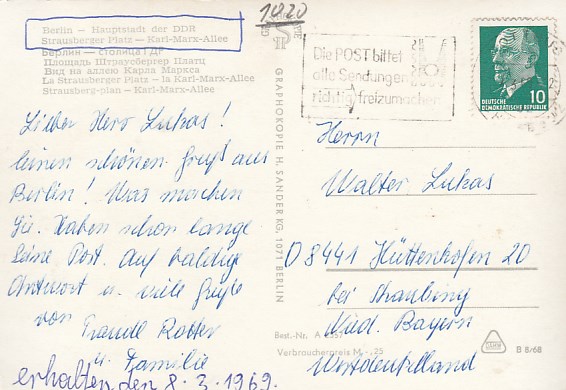 1020
Berlin — Hauptstadt der DDR
Strausberger Platz — Karl-Marx-Allee
Берлин — столица ГДР
Площадь Штраусбергер Платц
Вид на аллею Карла Маркса
La Strausberger Platz — la Karl-Marx-Allee
Strausberg-plan — Karl-Marx-Allee
Lieber Herr Lukas!
Einen schönen Gruß aus
Berlin! Was machen
Sie. Haben schon lange
keine Post. Auf baldige
Antwort u. viele Grüße
von
Traudl
u. Familie
erhalten den 8.3.1969.
GRAPHOKOPIE H. SANDER KG, 1071 BERLIN
Die POST bittet
alle Sendungen
richtig freizumachen
DEUTSCHE
DEMOKRATISCHE REPUBLIK
10
Herrn
Walter Lukas
8441 Hüttenkofen 20
bei Straubing
Nied. Bayern
Westdeutschland
Best.-Nr. A
Verbraucherpreis M -,25
B 8/68